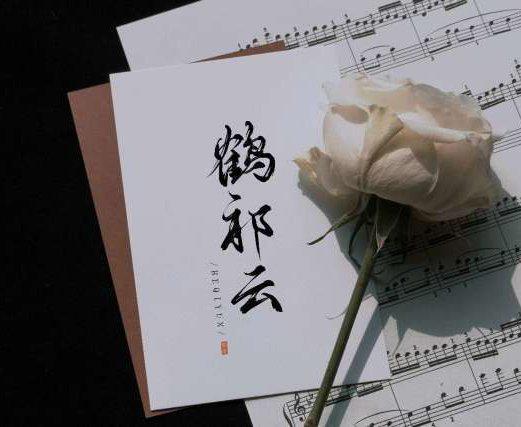 鹤祁云
/HEQIYUN/